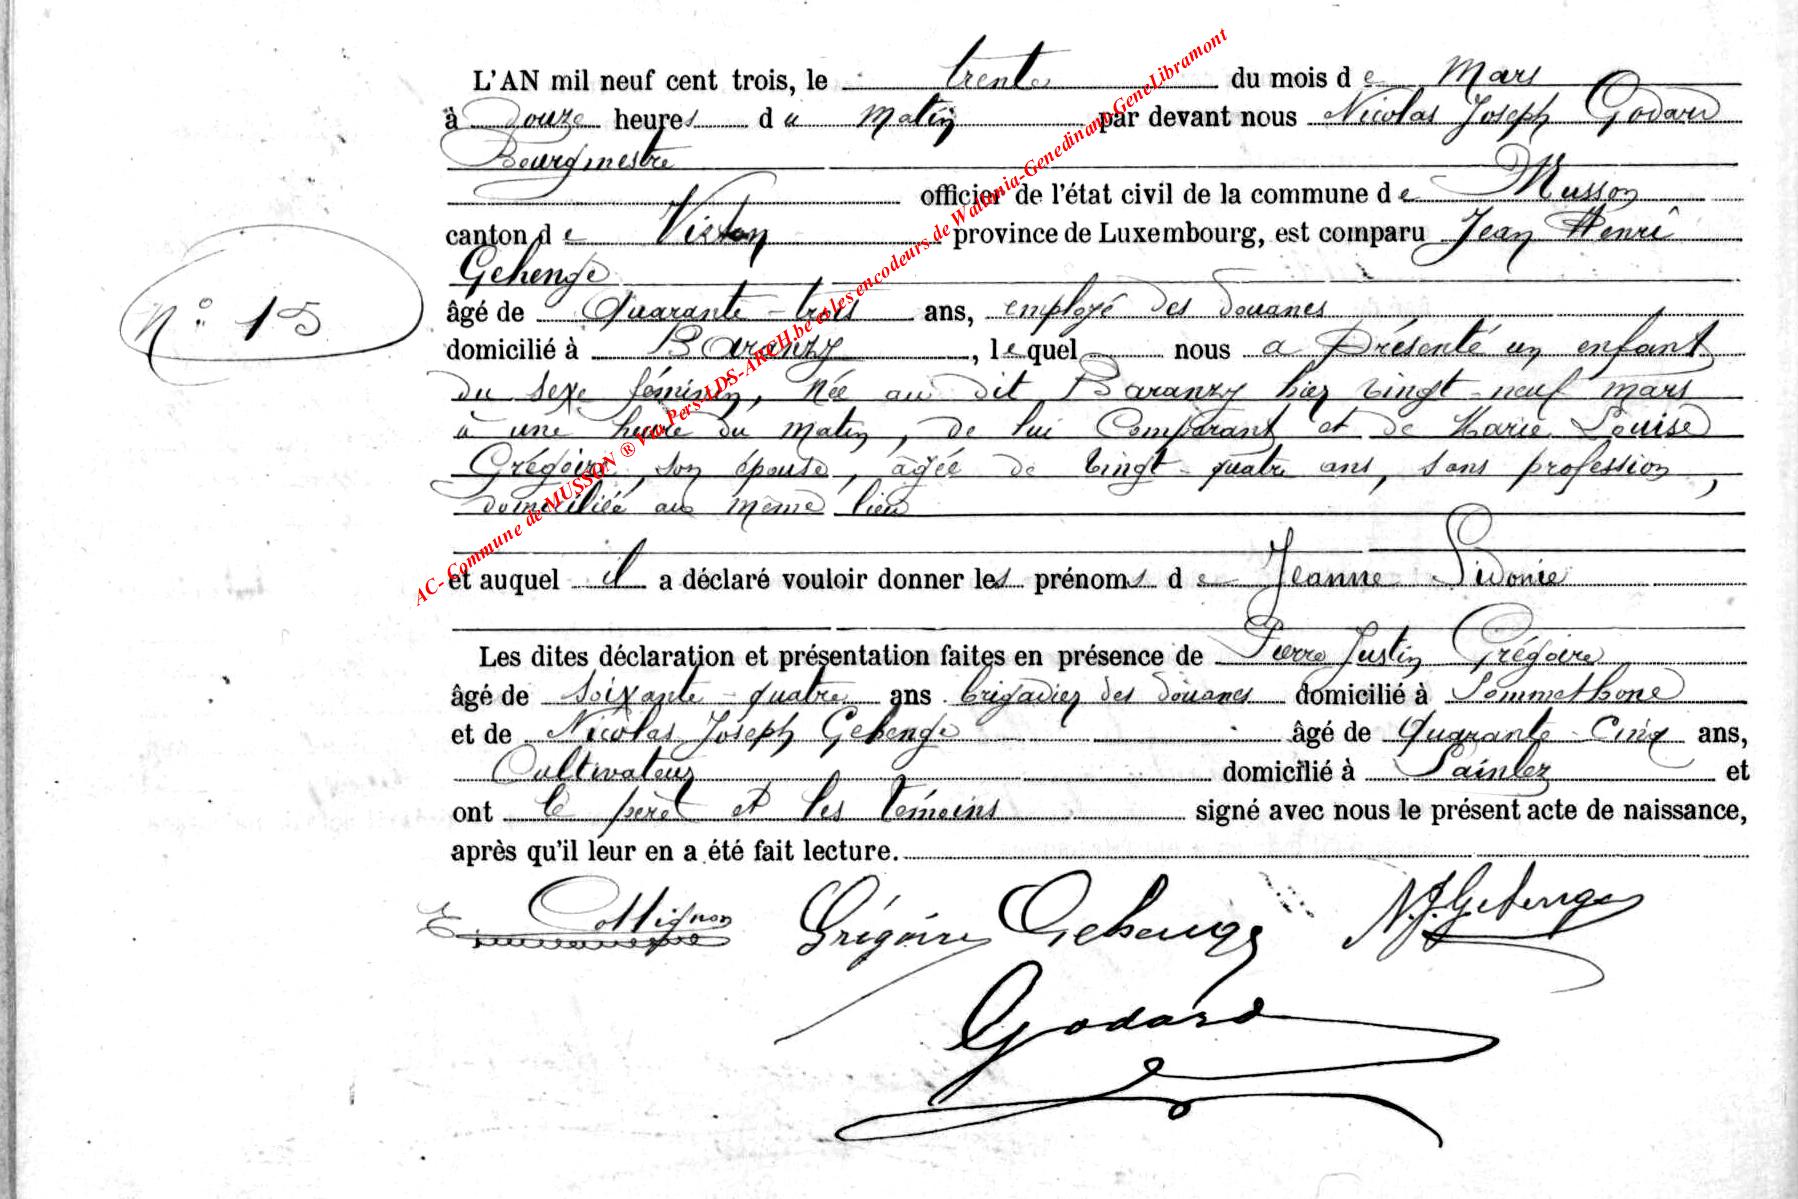 L'AN mil neuf cent trois, le trente du mois de Mars
à douze heures du matin par devant nous Nicolas Joseph Godard
Bourgmestre
officier de l'état civil de la commune de Musson
canton de Virton province de Luxembourg, est comparu Jean Henri
Gehenge
N° 15
âgé de Quarante-trois ans, employé des douanes
domicilié à Baranzy, lequel nous a Présenté un enfant
du sexe féminin, Née au dit Baranzy hier vingt-neuf mars
à une heure du matin, de lui Comparant et de Marie Louise
Grégoire, son épouse, âgée de vingt-quatre ans, sans profession,
domiciliée au même lieu
et auquel il a déclaré vouloir donner les prénoms de Jeanne Sidonie
Les dites déclaration et présentation faites en présence de Pierre Justin Grégoire
âgé de soixante-quatre ans brigadier des douanes domicilié à Sommethone
et de Nicolas Joseph Gehenge âgé de Quarante-Cinq ans,
Cultivateur domicilié à Sainlez et
ont le père et les témoins signé avec nous le présent acte de naissance,
après qu'il leur en a été fait lecture.
Cottignon Grégoire Gehenge N.J. Gehenge
Godard
AC- Commune de MUSSON ® Via Pers-LDS-ARCH.be et les encodeurs de Wallonia-Genedinant-GeneLibramont